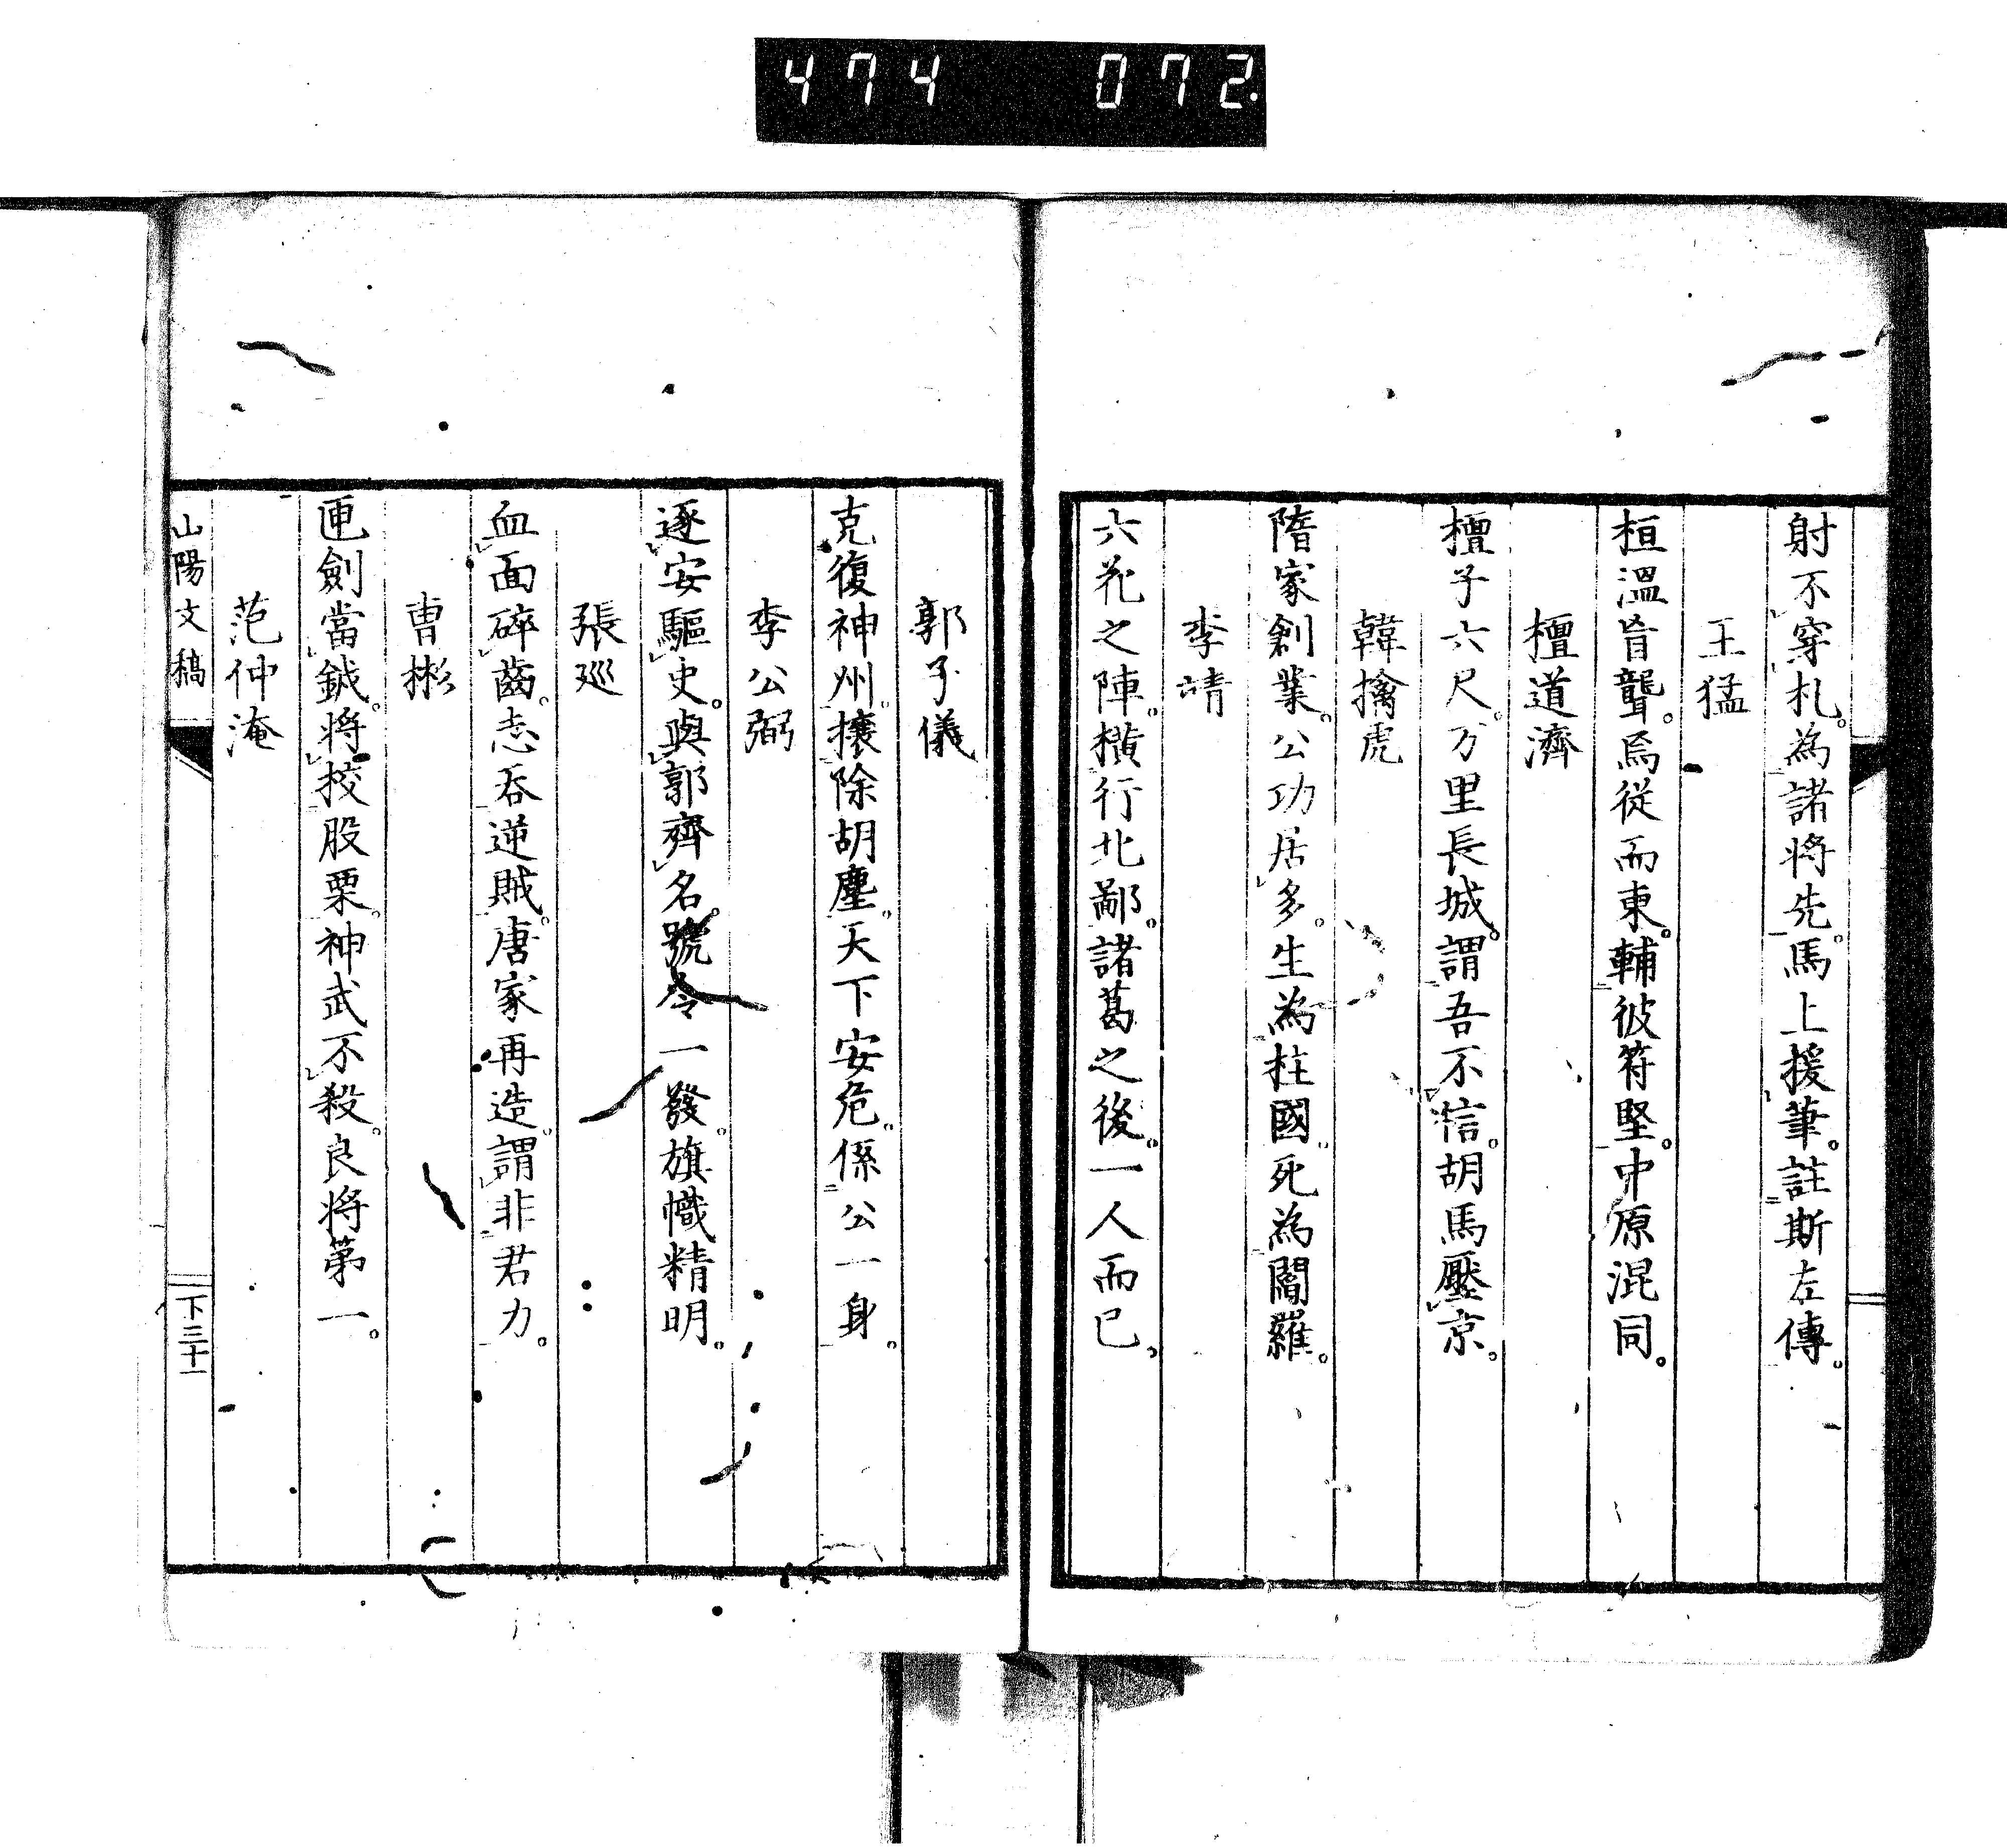 474 072.
射不穿札。為諸将先。馬上援筆。註斯左傳。
王猛
桓溫盲聾。焉從而東。輔彼符堅。中原混同。
檀道濟
檀子六尺。万里長城。謂吾不信。胡馬壓京。
韓擒虎
隋家創業。公功居多。生為柱國。死為閻羅。
李靖
六花之陣。橫行北鄙。諸葛之後。一人而已。
郭子儀
克復神州。攘除胡塵。天下安危。係公一身。
李公弼
逐安驅史。與郭齊名。號令一發。旗幟精明。
張巡
血面碎齒。志吞逆賊。唐家再造。謂非君力。
曹彬
匣劍當鉞。将校股栗。神武不殺。良将第一。
范仲淹
山陽文稿
下三十一